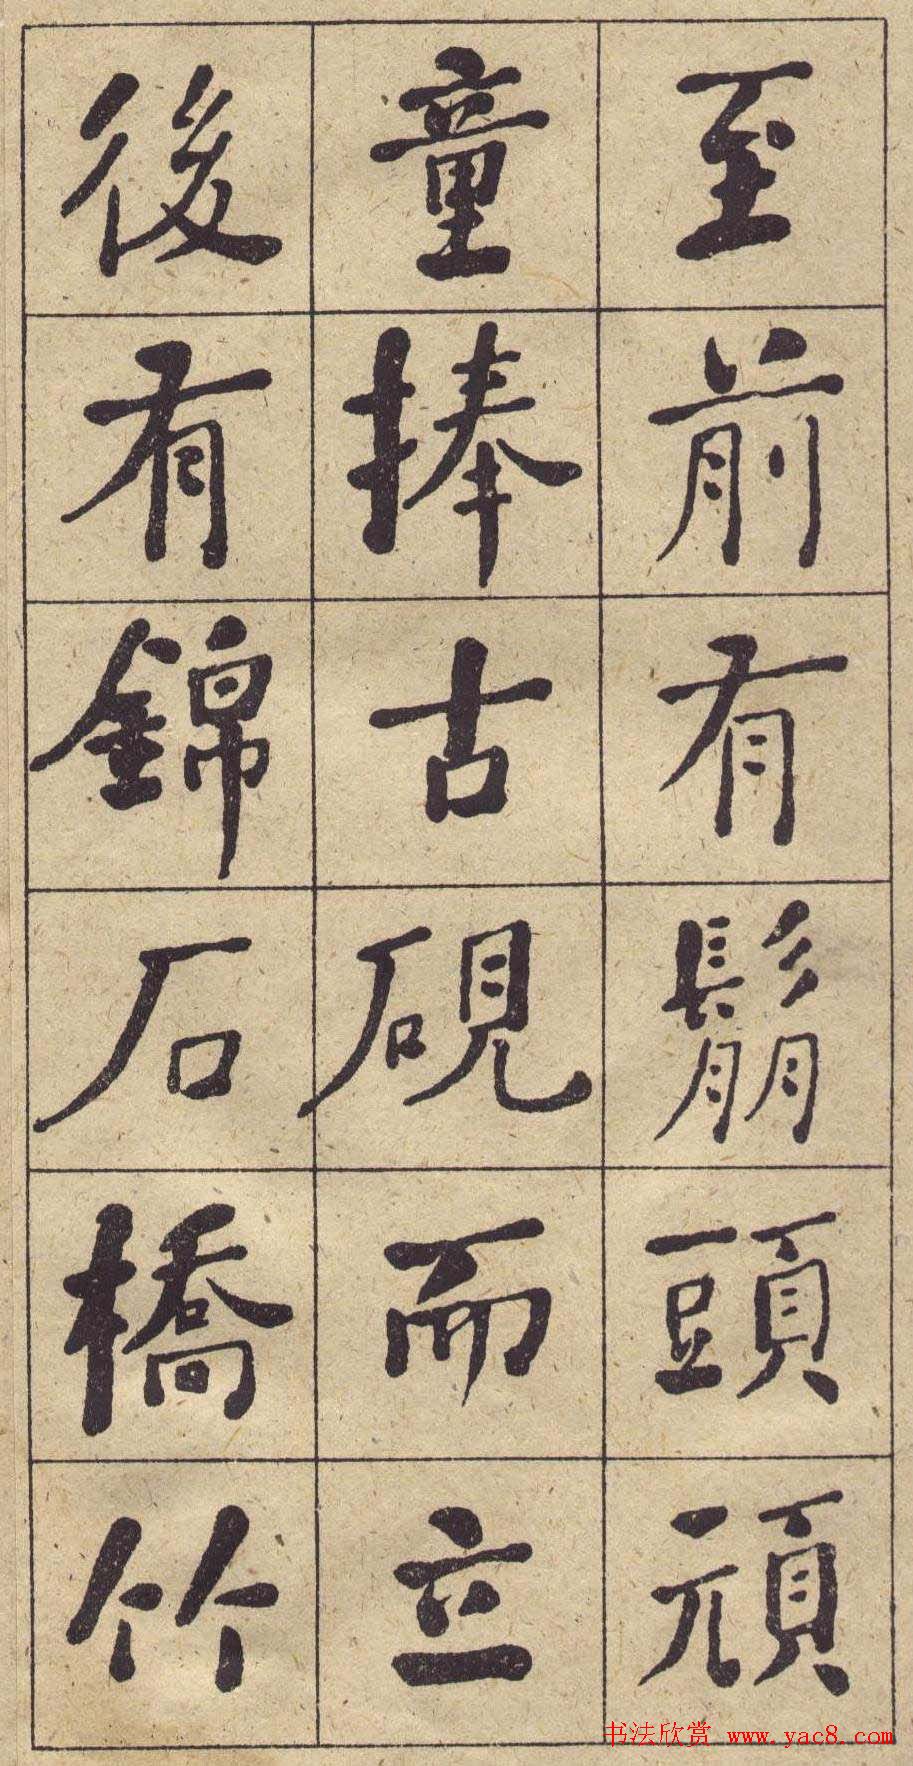 至前有鬅頭頑
童捧古硯而立
後有錦石橋竹
书法欣赏 www.yac8.com